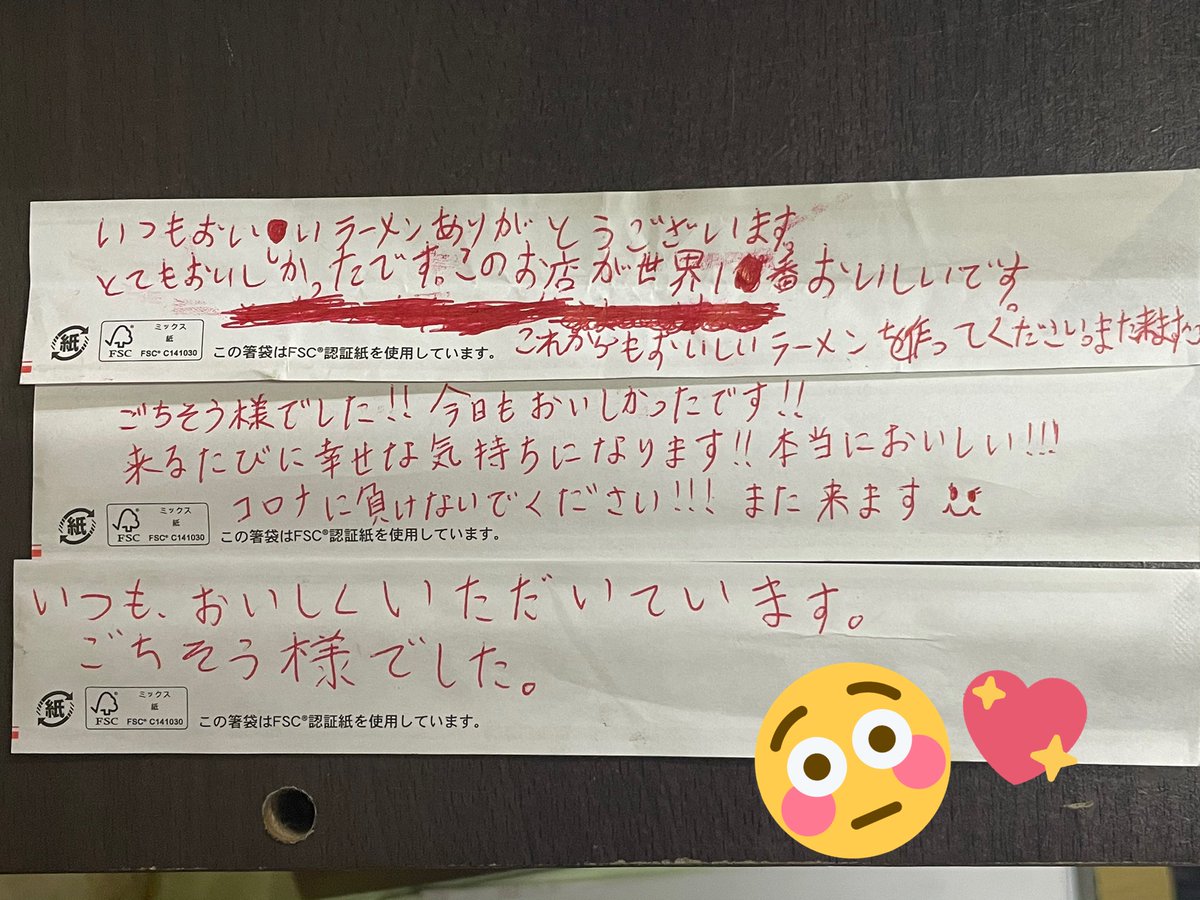 いつもおいしいラーメンありがとうございます。
とてもおいしかったです。このお店が世界1番おいしいです。
これからもおいしいラーメンを作ってください。また来ます
紙
FSC
ミックス
紙
FSC® C141030
この箸袋はFSC®認証紙を使用しています。
ごちそう様でした!! 今日もおいしかったです!!
来るたびに幸せな気持ちになります!! 本当においしい!!!
コロナに負けないでください!!! また来ます
紙
FSC
ミックス
紙
FSC® C141030
この箸袋はFSC®認証紙を使用しています。
いつも、おいしくいただいています。
ごちそう様でした。
紙
FSC
ミックス
紙
FSC® C141030
この箸袋はFSC®認証紙を使用しています。